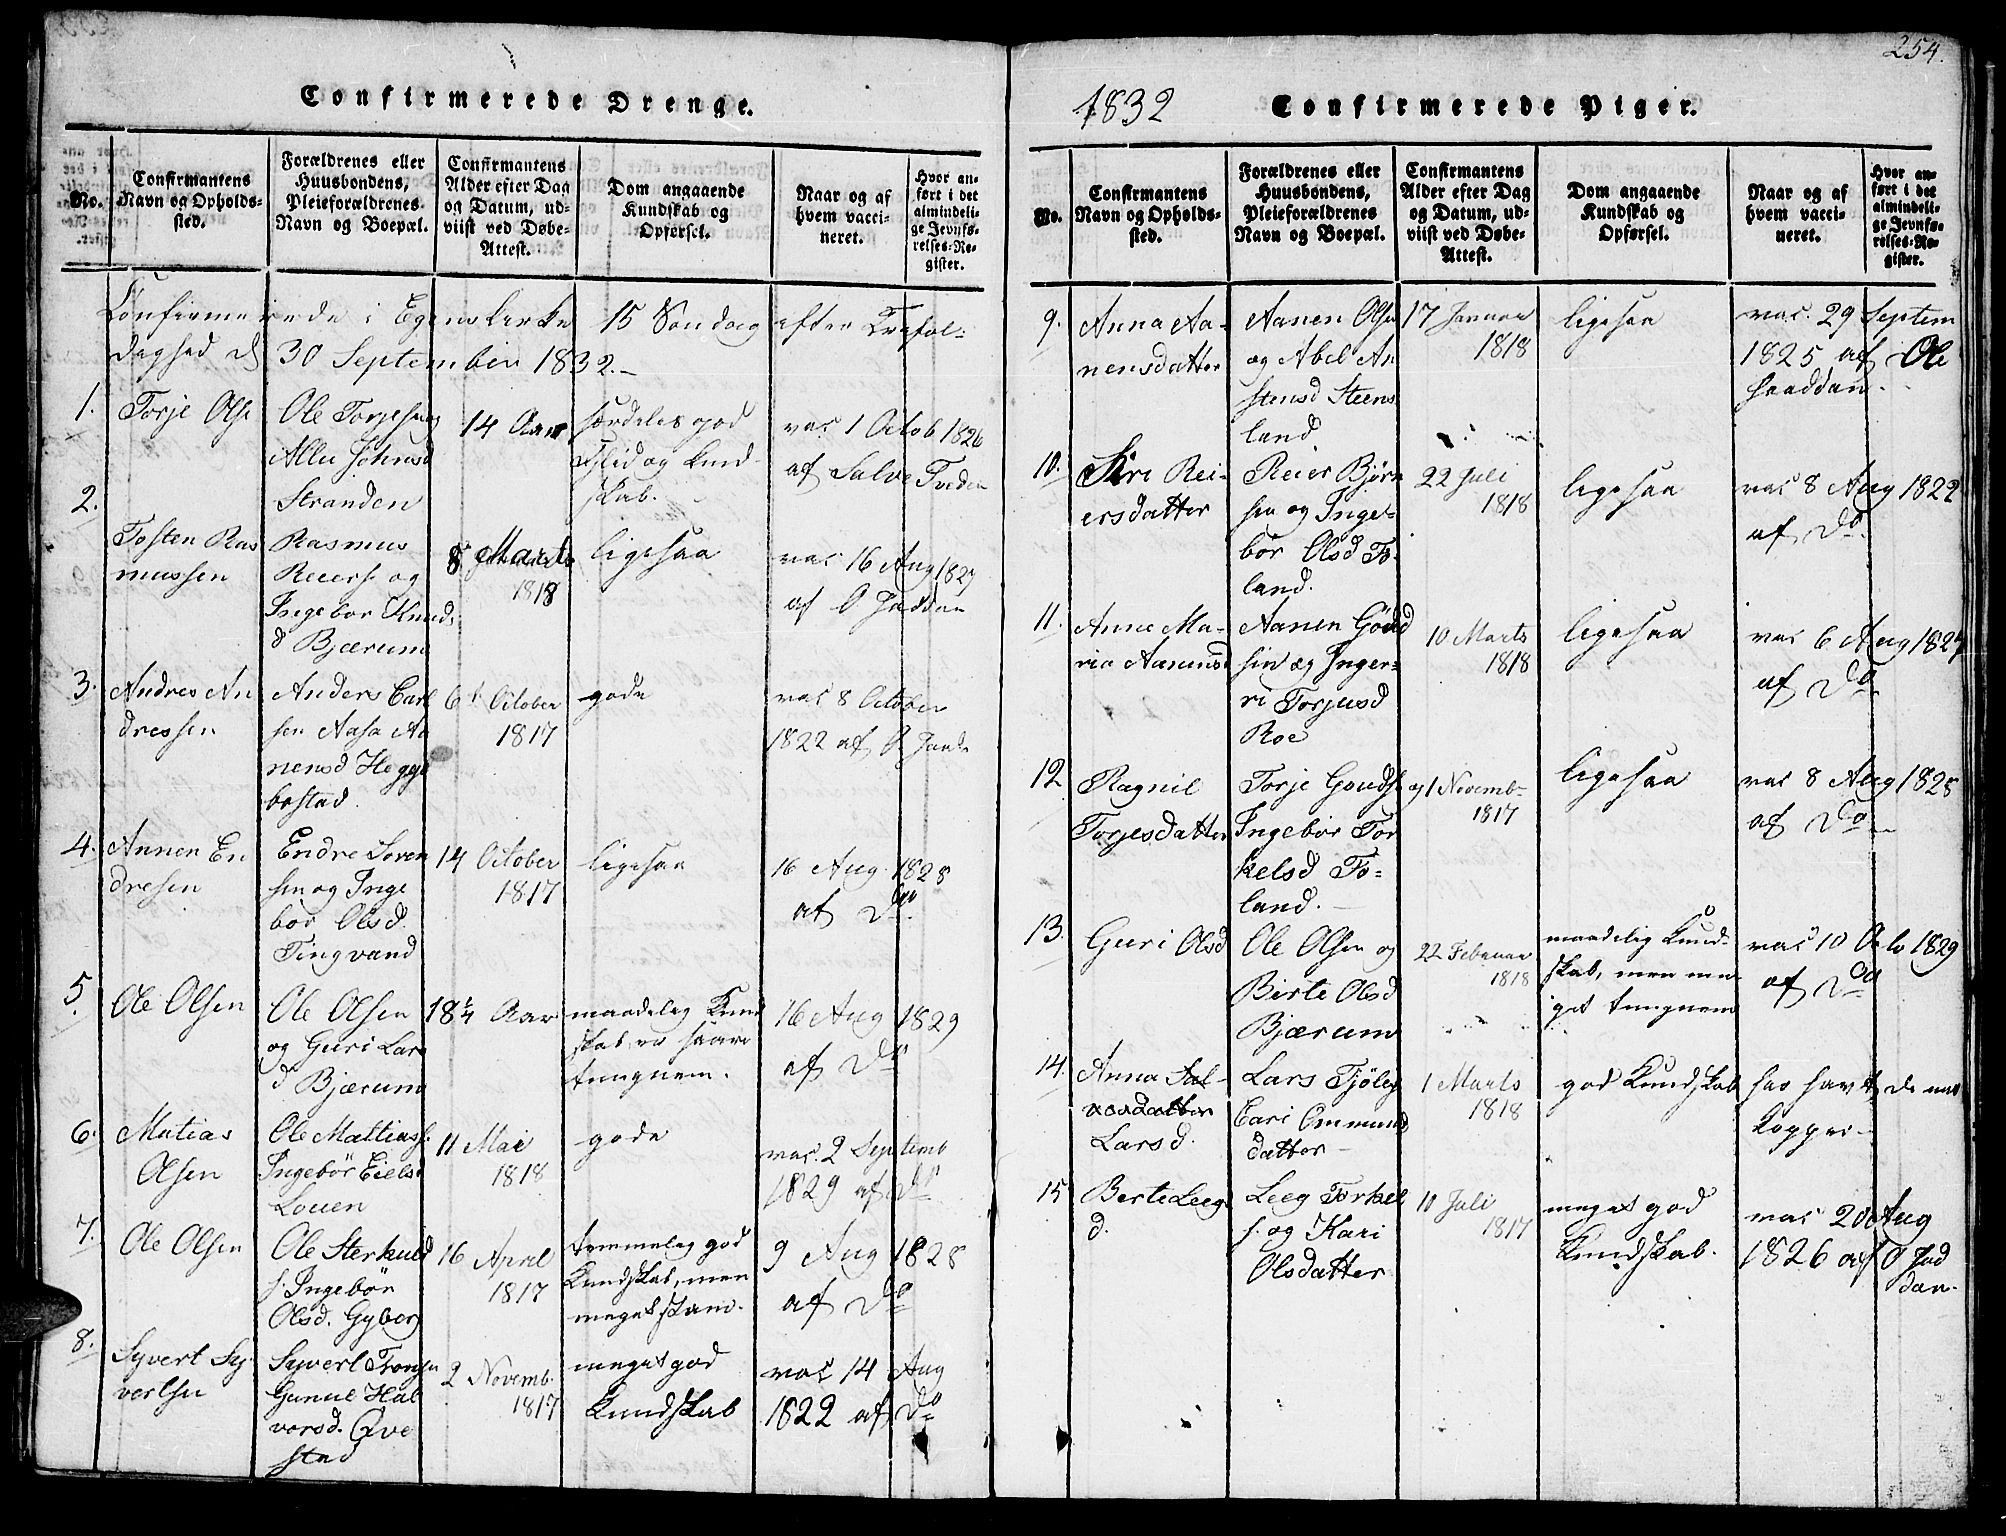 Confirmerede Drenge.
No.
Confirmantens
Navn og Opholds-
sted.
Forældrenes eller
Huusbondens,
Pleieforældrenes
Navn og Boepæl.
Confirmantens
Alder efter Dag
og Datum, ud-
viist ved Døbe-
Attest.
Dom angaaende
Kundskab og
Opførsel.
Naar og af
hvem vacci-
neret.
Hvor an-
ført i det
almindeli-
ge Jevnfø-
relses-Re-
gister.
Confirmerede i Egens Kirke 15 Søndag efter Trefol-
daghed d 30 September 1832.-
1. Torje Olse
Ole Torjesen og
Allu Johnsd
Stranden
14 Aar
særdeles god
Flid og Kund-
skab.
vac 1 Octob 1826
af Salve Tveden
2.
Tosten Ras
mussen
Rasmus
Reiers og
Ingebor Knud
d Bjærum
8 Marts
1818
ligesaa
vac 16 Aug 1827
af O Jaddan
3.
Andres An
dressen
Anders Carl
sen Aasa Aa
nensd Hegge
bostad.
6 October
1817
gode
vac 8 October
1822 af O
4.
Annen En
dresen
Endre Soren
sen og Inge
bor Olsd.
Tingvand
14 October
1817
ligesaa
16 Aug. 1828
af Do
5.
Ole Olsen
Ole Olsen
og Guri Lars
d Bjærum
18¼ Aar
maadeleg Kund
skab, er saare
tungnem.
16 Aug 1829
af Do
6.
Matias
Olsen
Ole Mattias s.
Ingebör Eielsd
Louen
11 Mai
1818
gode
vac. 2 Septemb
1829 af Do
7.
Ole Olsen
Ole Sterkuld
s. Ingebör
Olsd. Gyberg
16 April
1817
temmeleg god
Kundskab, men
meget stam-
9 Aug 1828
af Do
8.
Syvert Sy-
vertsen
Syvert Tronsen
Gunnil Hal
vorsd. Qve
stad
2 Novemb.
1817
meget god
Kundskab
vac 14 Aug
1822 af Do
254.
1832
Confirmerede Piger.
No.
Confirmantens
Navn og Opholds-
sted.
Forældrenes eller
Huusbondens,
Pleieforældrenes
Navn og Boepæl.
Confirmantens
Alder efter Dag
og Datum, ud-
viist ved Døbe-
Attest.
Dom angaaende
Kundskab og
Opførsel.
Naar og af
hvem vacci-
neret.
Hvor an-
ført i det
almindeli-
ge Jevnfø-
relses-Re-
gister.
9.
Anna Aa-
nensdatter
Aanen Olsen
og Abel An
stensd Steens
land
17 Januar
1818
ligesaa
vac. 29 Septem
1825 af Ole
Jaaddan.
10.
Siri Rei-
ersdatter
Reier Bjørn
sen og Inge-
bor Olsd To-
land.
22 Juli
1818
ligesaa
vac 8 Aug 1822
af Do
11.
Anne Ma-
ria Aanensd
Aanen Göud
sen og Inger-
ri Torjusd
Roe
10 Marts
1818
ligesaa
vac 6 Aug 1827
af Do
12
Ragnil
Torjesdatter
Torje Goudse og
Ingebör Tor
kelsd To-
land.
1 Novemb-
1817
ligesaa
vac 8 Aug 1828
af Do
13.
Guri Olsd
Ole Olsen og
Birte Olsd
Bjærum
22 Februar
1818
maadelig Kund-
skab, men me-
get tungnem
vac 10 Octo 1829
af Do
14.
Anna Sal-
vesdatter
Larsd.
Lars Tjöleg
Cari Ommund
datter
1 Marts
1818
god Kundskab
har havt de nat
Kopper-
15
Berte Leeg
d.
Leeg Torkel
s. og Kari
Olsdatter
10 Juli
1817
meget god
Kundskab.
vac 20 Aug
1826 af O Jad
dan.